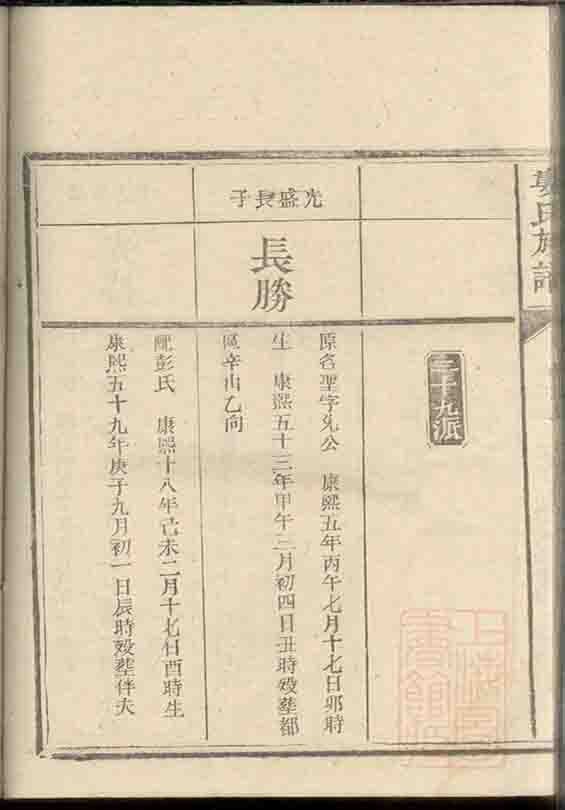 氏族譜
三十九派
光盛長子
長勝
原名聖字先公　康熙五年丙午七月十七日卯時
生　康熙五十三年甲午三月初四日丑時歿塟都
區辛山乙向
配彭氏　康熙十八年己未二月十七日酉時生
康熙五十九年庚子九月初一日辰時歿塟伴夫
上海圖書館藏